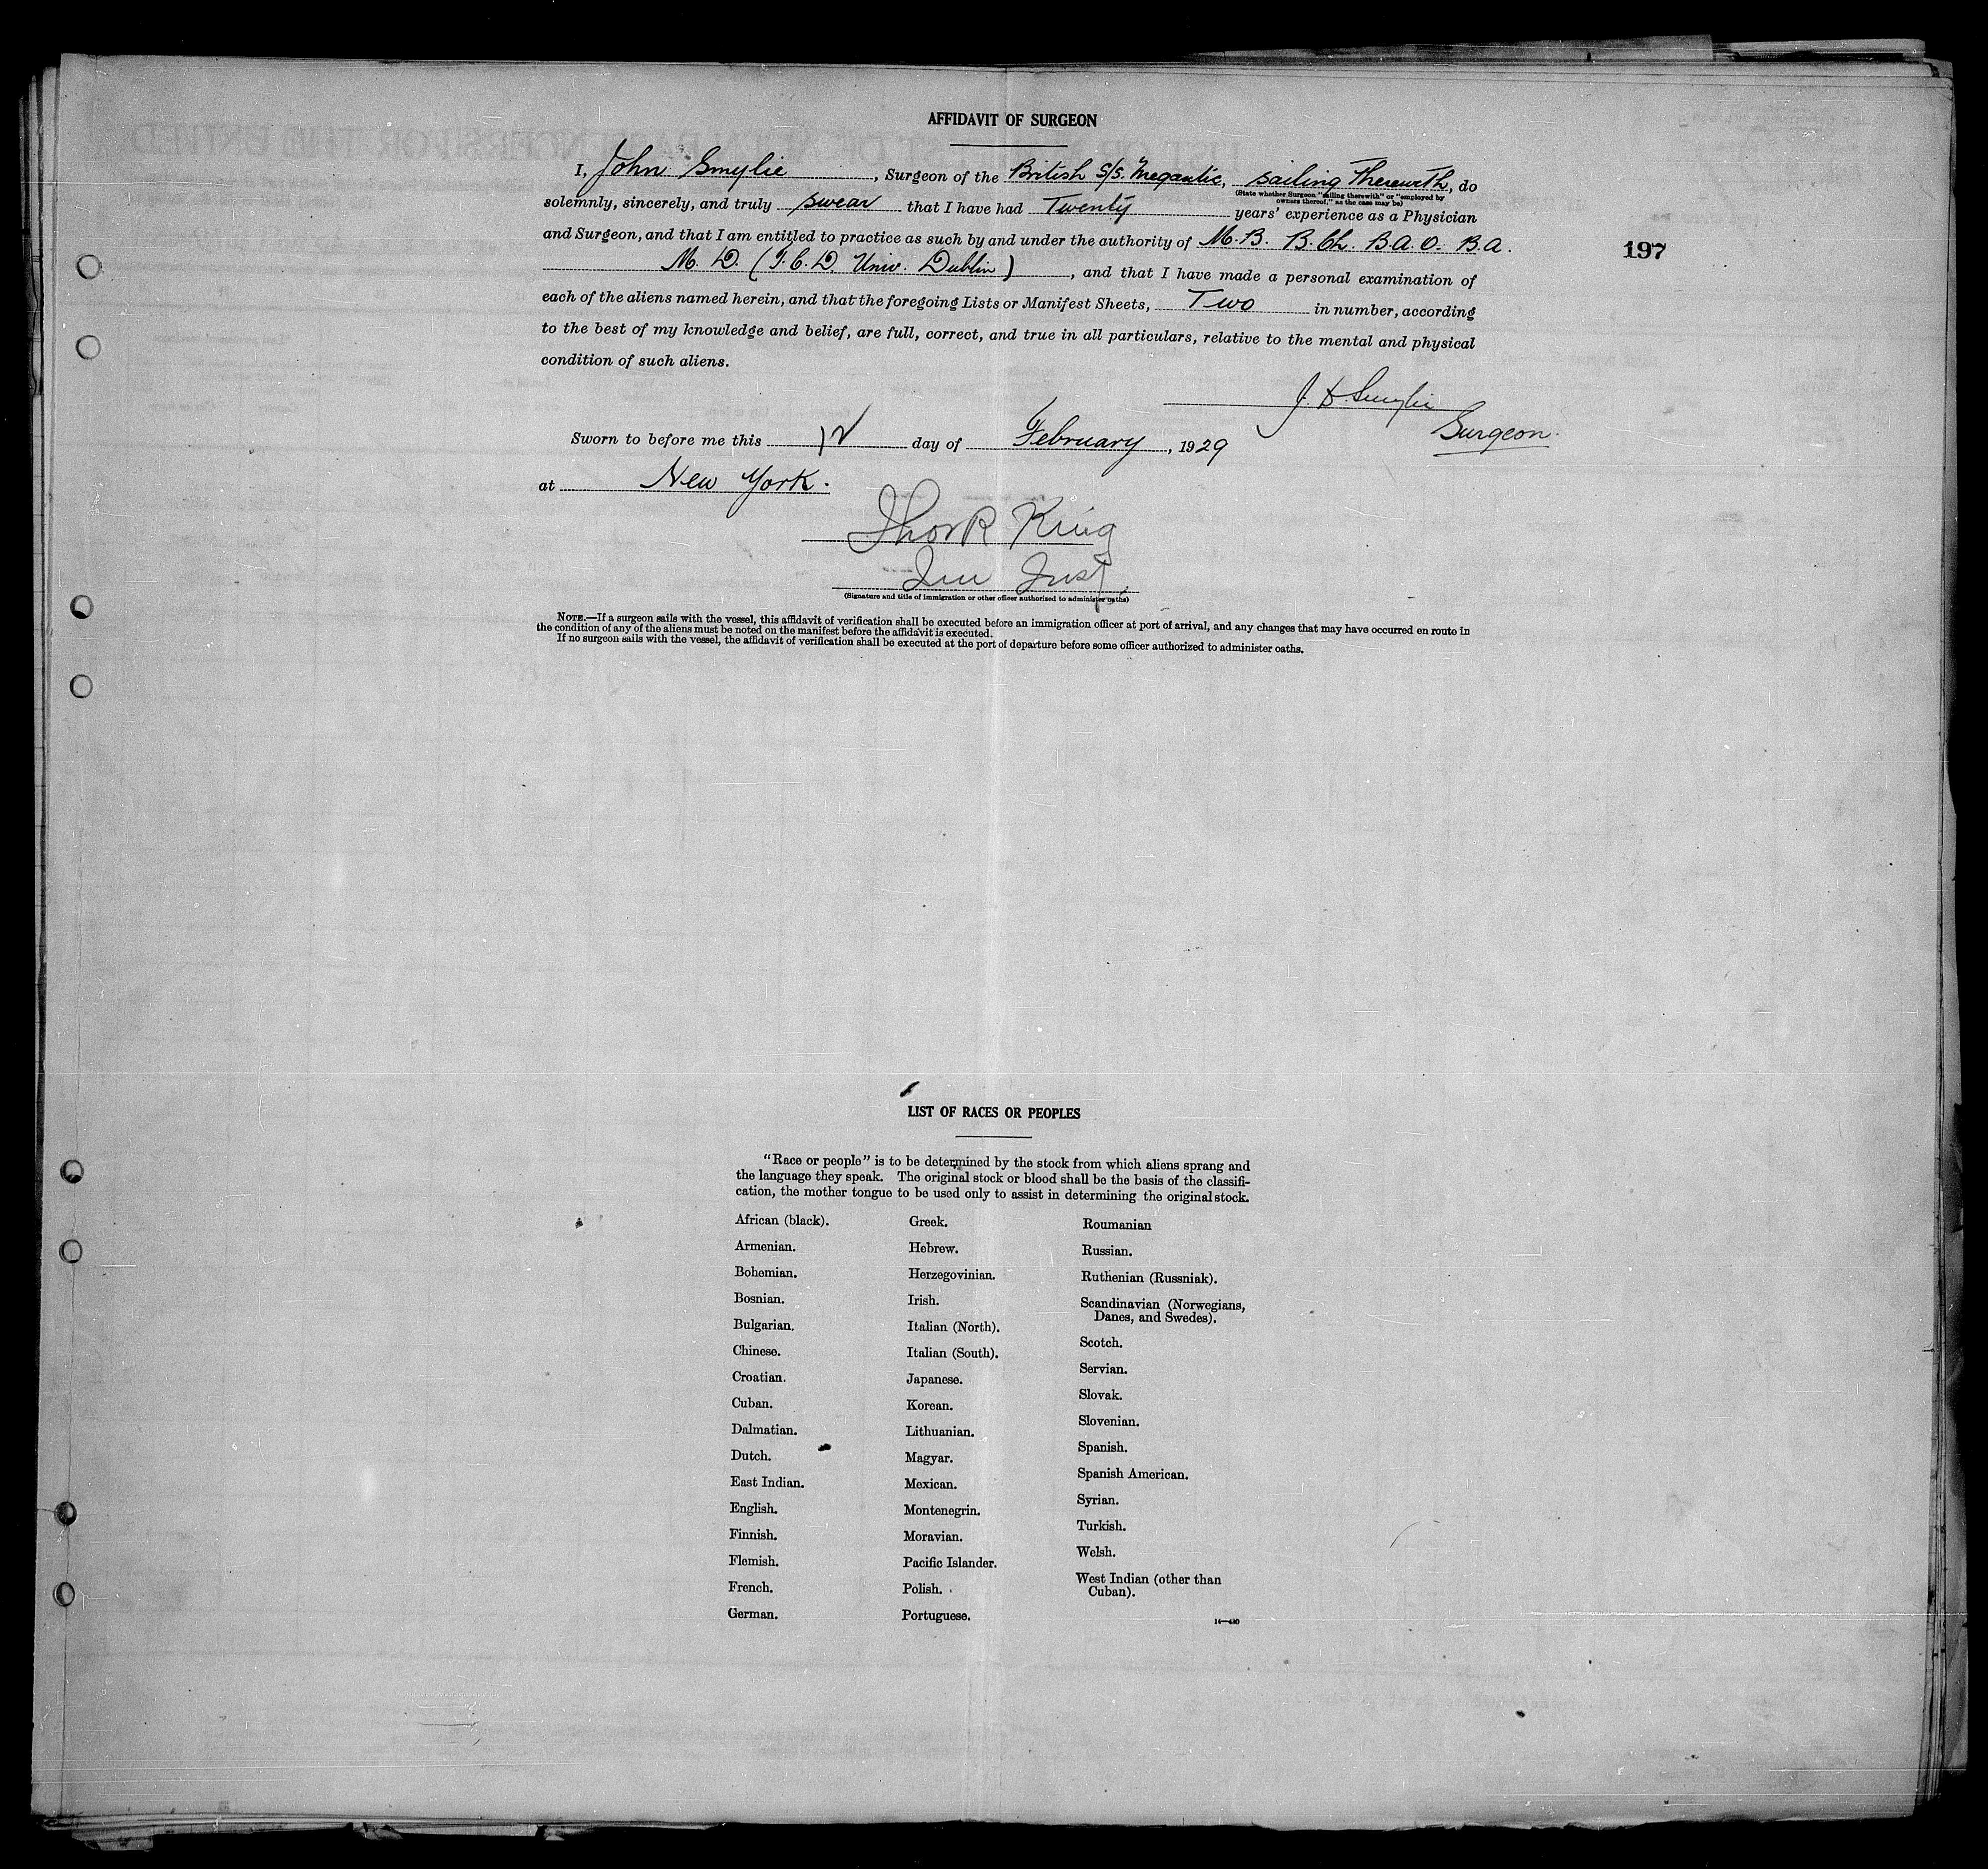 AFFIDAVIT OF SURGEON
I, John Smylie, Surgeon of the British S/S. Megantic, sailing Therewith, do
(State whether Surgeon "sailing therewith" or "employed by
owners thereof," as the case may be)
solemnly, sincerely, and truly swear that I have had Twenty years' experience as a Physician
and Surgeon, and that I am entitled to practice as such by and under the authority of M.B. B.Ch. B.A.O. B.A.
197
M.D. (T.C.D. Univ. Dublin), and that I have made a personal examination of
each of the aliens named herein, and that the foregoing Lists or Manifest Sheets, Two in number, according
to the best of my knowledge and belief, are full, correct, and true in all particulars, relative to the mental and physical
condition of such aliens.
Smylie
Surgeon.
Sworn to before me this 12 day of February, 1929
at New York.
King
(Signature and title of immigration or other officer authorized to administer oaths)
NOTE.—If a surgeon sails with the vessel, this affidavit of verification shall be executed before an immigration officer at port of arrival, and any changes that may have occurred en route in
the condition of any of the aliens must be noted on the manifest before the affidavit is executed.
If no surgeon sails with the vessel, the affidavit of verification shall be executed at the port of departure before some officer authorized to administer oaths.
LIST OF RACES OR PEOPLES
"Race or people" is to be determined by the stock from which aliens sprang and
the language they speak. The original stock or blood shall be the basis of the classifi-
cation, the mother tongue to be used only to assist in determining the original stock.
African (black).
Armenian.
Bohemian.
Bosnian.
Bulgarian.
Chinese.
Croatian.
Cuban.
Dalmatian.
Dutch.
East Indian.
English.
Finnish.
Flemish.
French.
German.
Greek.
Hebrew.
Herzegovinian.
Irish.
Italian (North).
Italian (South).
Japanese.
Korean.
Lithuanian.
Magyar.
Mexican.
Montenegrin.
Moravian.
Pacific Islander.
Polish.
Portuguese.
Roumanian
Russian.
Ruthenian (Russniak).
Scandinavian (Norwegians,
Danes, and Swedes).
Scotch.
Servian.
Slovak.
Slovenian.
Spanish.
Spanish American.
Syrian.
Turkish.
Welsh.
West Indian (other than
Cuban).